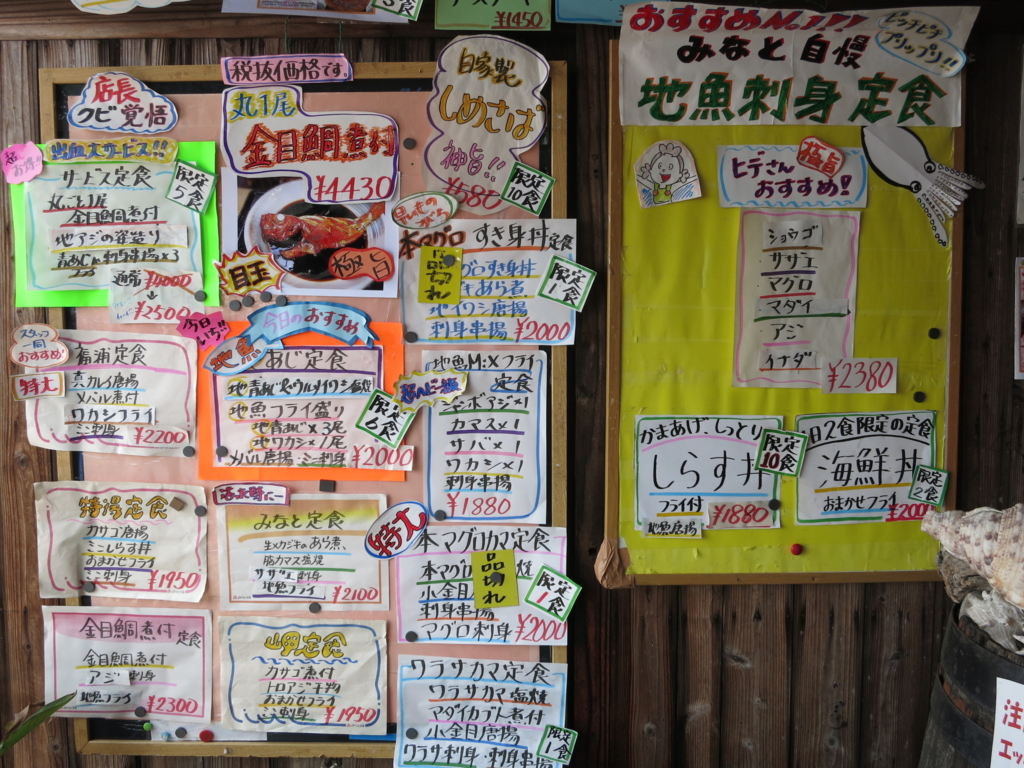 ¥1450
店長
クビ覚悟
出血大サービス!!
サービス定食
限定
5食
丸ごと1尾
金目鯛煮付
地アジの姿造り
青あじ刺身串揚×3
通常 ¥4000
↓
¥2500
税抜価格です。
丸末尾
金目鯛煮付
¥4430
目玉
極旨
自家製
しめさば
神旨!!
¥580
限定
10食
本マグロ すき身丼定食
品切れ
限定
1食
地イワシ唐揚
刺身串揚 ¥2000
スタッフ
一同
おすすめ!
特大
真カレイ唐揚
メバル煮付
ワカシフライ
ミニ刺身
¥2200
今日
いち!!
今日のおすすめ
地魚
あじ定食
地魚フライ盛り
地青あじ×3尾
地ワカシ×1尾
メバル唐揚・ミニ刺身
¥2000
限定
6食
地魚Mixフライ
定食
ジャンボアジ×1
カマス×1
サバ×1
ワカシ×1
刺身串揚
¥1880
カサゴ唐揚
ミニしらす丼
おまかせフライ
ミニ刺身
¥1950
みなと定食
生メカジキのあら煮、
サザエ刺身
地魚フライ
¥2100
特大
本マグロカマ定食
品切れ
限定
1食
刺身串揚
マグロ刺身 ¥2000
金目鯛煮付定食
金目鯛煮付
アジ刺身
地魚フライ
¥2300
岬定食
カサゴ煮付
トロアジ干物
おまかせフライ
ミニ刺身
¥1950
ワラサカマ定食
ワラサカマ塩焼
マダイカブト煮付
小金目唐揚
ワラサ刺身・刺身串揚
限定
1食
おすすめNo.1!!!
みなと自慢
ピッチピチ
プリップリ!!
地魚刺身定食
ヒデさん
おすすめ!
極旨
ショウゴ
サザエ
マグロ
マダイ
アジ
イナダ
¥2380
かまあげ、しっとり
しらす丼
フライ付
地魚唐揚
¥1880
限定
10食
1日2食限定の定食
海鮮丼
おまかせフライ
限定
2食
¥200
注
エッ